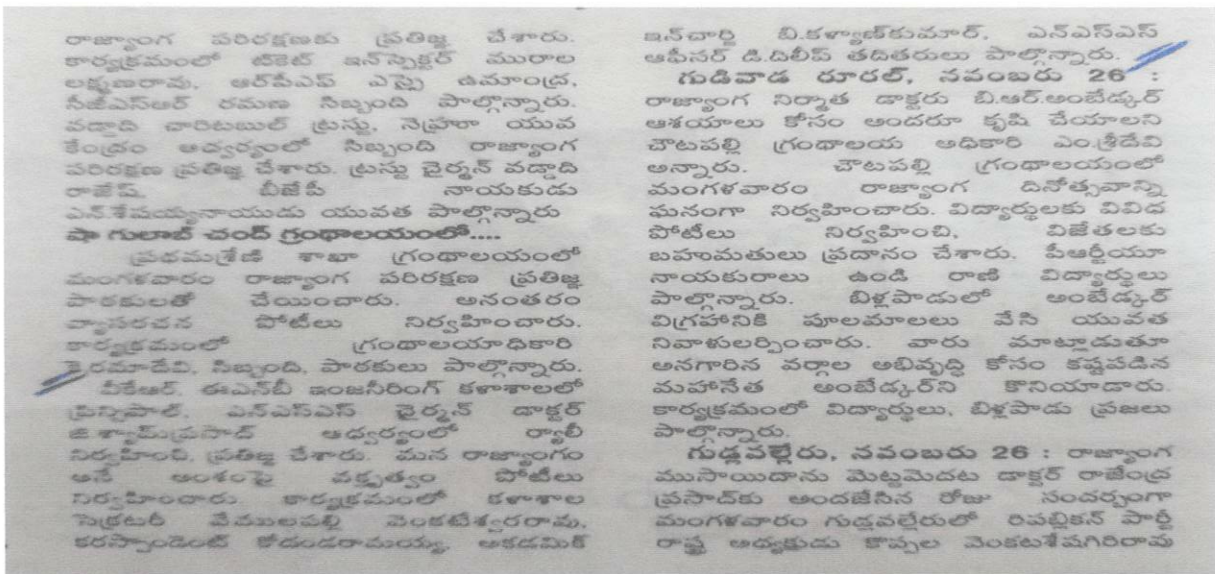 రాజ్యాంగ పరిరక్షణకు ప్రతిజ్ఞ చేశారు.
కార్యక్రమంలో టికెట్ ఇన్‌స్పెక్టర్ మురాల
లక్ష్మణరావు, ఆర్‌పీఎఫ్ ఎస్సై ఉమాంద్ర,
సీజీఎస్ఆర్ రమణ సిబ్బంది పాల్గొన్నారు.
వడ్డాది చారిటబుల్ ట్రస్టు, నెహ్రూ యువ
కేంద్రం ఆధ్వర్యంలో సిబ్బంది రాజ్యాంగ
పరిరక్షణ ప్రతిజ్ఞ చేశారు. ట్రస్టు చైర్మన్ వడ్డాది
రాజేష్, బీజేపీ నాయకుడు
ఎన్.శేషయ్యనాయుడు యువత పాల్గొన్నారు
షా గులాబ్ చంద్ గ్రంథాలయంలో....
ప్రథమశ్రేణి శాఖా గ్రంథాలయంలో
మంగళవారం రాజ్యాంగ పరిరక్షణ ప్రతిజ్ఞ
పాఠకులతో చేయించారు. అనంతరం
వ్యాసరచన పోటీలు నిర్వహించారు.
కార్యక్రమంలో గ్రంథాలయాధికారి
కైరమాదేవి, సిబ్బంది, పాఠకులు పాల్గొన్నారు.
వీకేఆర్, ఈఎన్‌బీ ఇంజనీరింగ్ కళాశాలలో
ప్రిన్సిపాల్, ఎన్ఎస్ఎస్ చైర్మన్ డాక్టర్
జి.శ్యామ్‌ప్రసాద్ ఆధ్వర్యంలో ర్యాలీ
నిర్వహించి, ప్రతిజ్ఞ చేశారు. మన రాజ్యాంగం
అనే అంశంపై వక్తృత్వం పోటీలు
నిర్వహించారు. కార్యక్రమంలో కళాశాల
సెక్రటరీ వేములపల్లి వెంకటేశ్వరరావు,
కరస్పాండెంట్ కోదండరామయ్య, అకడమిక్
ఇన్‌చార్జి బి.కళ్యాణ్‌కుమార్, ఎన్ఎస్ఎస్
ఆఫీసర్ డి.దిలీప్ తదితరులు పాల్గొన్నారు.
గుడివాడ రూరల్, నవంబరు 26 :
రాజ్యాంగ నిర్మాత డాక్టరు బి.ఆర్.అంబేడ్కర్
ఆశయాలు కోసం అందరూ కృషి చేయాలని
చౌటపల్లి గ్రంథాలయ అధికారి ఎం.శ్రీదేవి
అన్నారు. చౌటపల్లి గ్రంథాలయంలో
మంగళవారం రాజ్యాంగ దినోత్సవాన్ని
ఘనంగా నిర్వహించారు. విద్యార్థులకు వివిధ
పోటీలు నిర్వహించి, విజేతలకు
బహుమతులు ప్రదానం చేశారు. పీఆర్టీయూ
నాయకురాలు ఉండి రాణి విద్యార్థులు
పాల్గొన్నారు. బిళ్లపాడులో అంబేడ్కర్
విగ్రహానికి పూలమాలలు వేసి యువత
నివాళులర్పించారు. వారు మాట్లాడుతూ
అనగారిన వర్గాల అభివృద్ధి కోసం కష్టపడిన
మహానేత అంబేడ్కర్‌ని కొనియాడారు.
కార్యక్రమంలో విద్యార్థులు, బిళ్లపాడు ప్రజలు
పాల్గొన్నారు.
గుడ్లవల్లేరు, నవంబరు 26 : రాజ్యాంగ
ముసాయిదాను మెట్టమెదట డాక్టర్ రాజేంద్ర
ప్రసాద్‌కు అందజేసిన రోజు సందర్భంగా
మంగళవారం గుడ్లవల్లేరులో రిపబ్లికన్ పార్టీ
రాష్ట్ర అధ్యక్షుడు కొప్పల వెంకటశేషగిరిరావు